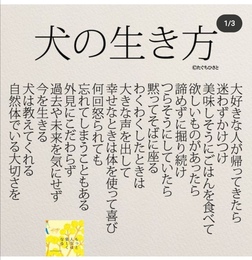 1/3
犬の生き方
©たぐちひさと
大好きな人が帰ってきたら
迷わずかけつけ
美味しそうにごはんを食べて
欲しいものがあったら
諦めずに掘り続け
つらそうにしていたら
黙ってそばに座る
わくわくしたときは
大きな声を出して
幸せなときは体を使って喜び
何回怒られても
忘れてしまうこともある
外見にこだわらず
過去や未来を気にせず
今を生きる
犬は教えてくれる
自然体でいる大切さを